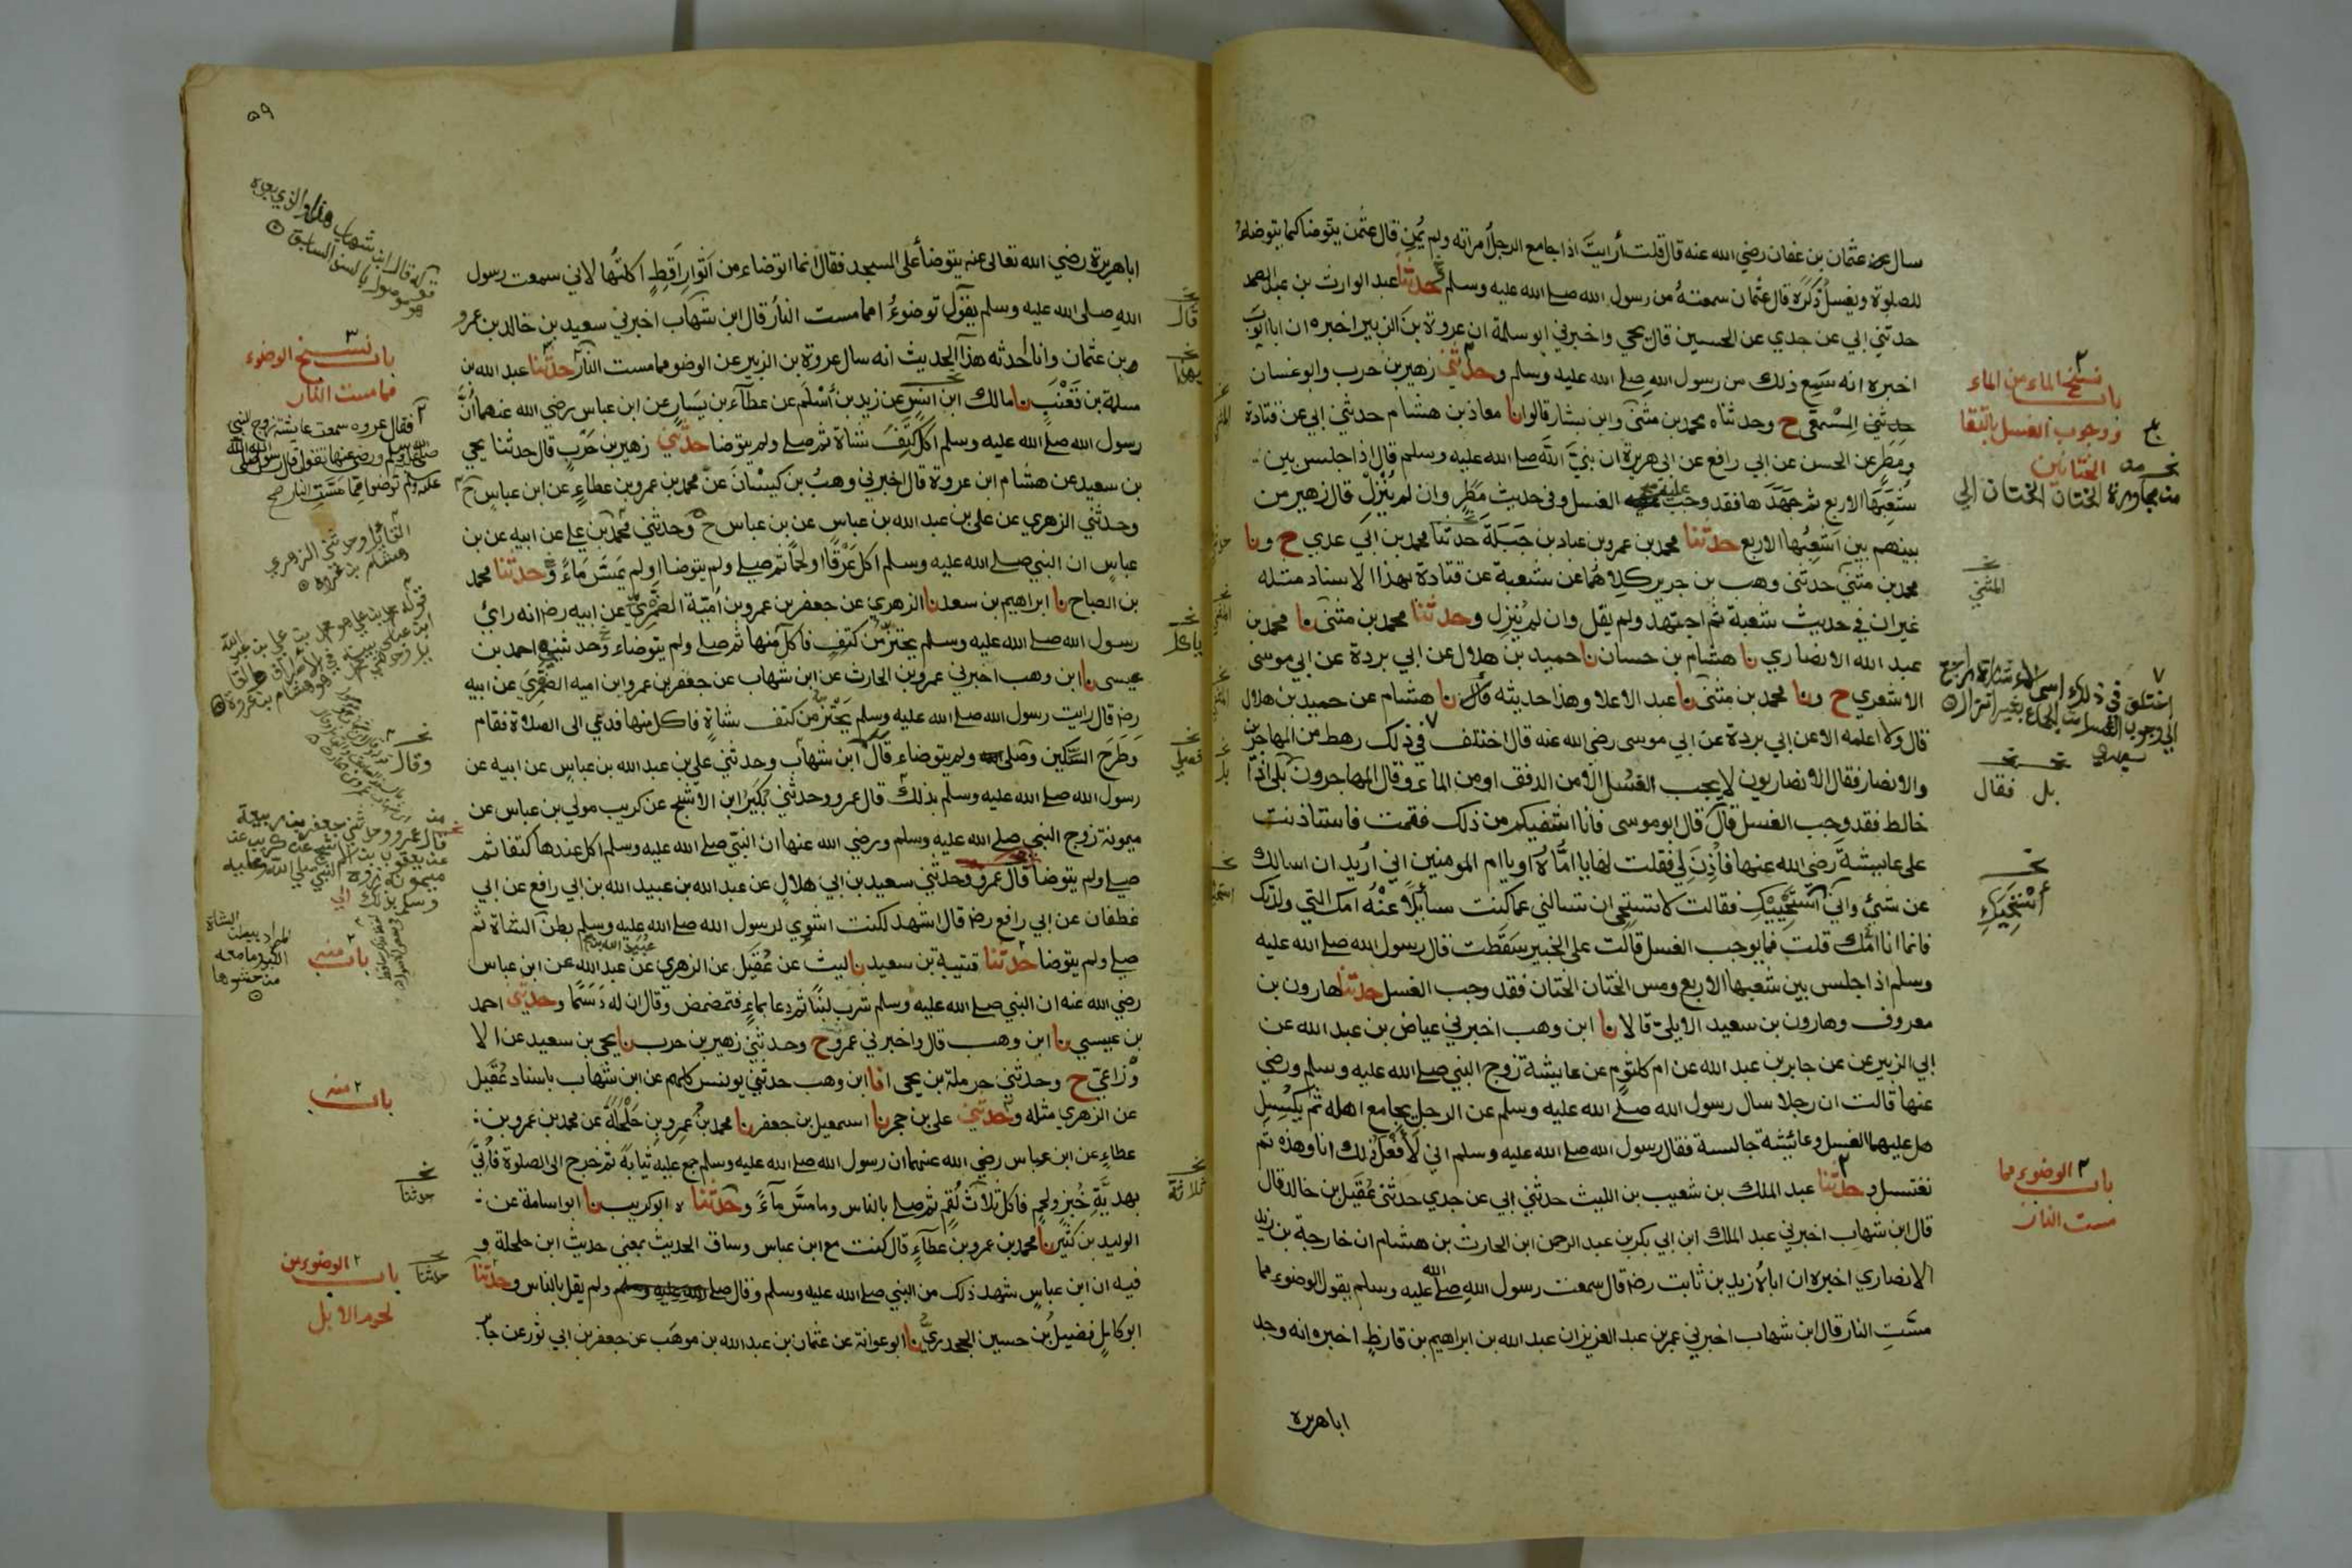 سال عن عثمان بن عفان رضي الله عنه قال قلت أرايت اذا جامع الرجل امراته ولم يُمنِ قال عثمن يتوضا كما يتوضاء
للصلوة ويغسل ذكره قال عثمان سمعته من رسول الله صلى الله عليه وسلم وحدثنا عبد الوارث بن عبد الصمد
حدثني ابي عن جدي عن الحسين قال يحيى واخبرني ابو سلمة ان عروة بن الزبير اخبره ان ابا ايوب
اخبره انه سمع ذلك من رسول الله صلى الله عليه وسلم وحدثني زهير بن حرب وابو غسان
حدثني المسمعي ح وحدثناه محمد بن مثنى وابن بشار قالوا نا معاذ بن هشام حدثني ابي عن قتادة
ومطر عن الحسن عن ابي رافع عن ابي هريرة ان نبي الله صلى الله عليه وسلم قال اذا جلس بين
شعبها الاربع ثم جهدها فقد وجب عليه الغسل وفي حديث مطر وان لم ينزل قال زهير من
بينهم بين اشعبها الاربع حدثنا محمد بن عمرو بن عباد بن جبلة حدثنا محمد بن ابي عدي ح ونا
محمد بن مثني حدثني وهب بن جرير كلاهما عن شعبة عن قتادة بهذا الاسناد مثله
غير ان في حديث شعبة ثم اجتهد ولم يقل وان لم ينزل وحدثنا محمد بن مثنى نا محمد بن
عبد الله الانصاري نا هشام بن حسان نا حميد بن هلال عن ابي بردة عن ابي موسى
الاشعري ح ونا محمد بن مثنى نا عبد الاعلا وهذا حديثه قال نا هشام عن حميد بن هلال
قال ولا اعلمه الا عن ابي بردة عن ابي موسى رضي الله عنه قال اختلف في ذلك رهط من المهاجرين
والانصار فقال الانصاريون لا يجب الغسل الا من الدفق او من الماء وقال المهاجرون بلى اذا
خالط فقد وجب الغسل قال قال ابو موسى فانا اشفيكم من ذلك فقمت فاستاذنت
على عايشة رضي الله عنها فاذن لي فقلت لها يا اماه او يا ام المومنين اني اريد ان اسالك
عن شئ واني استحييك فقالت لا تستحي ان تسالني عما كنت سائلا عنه امك التي ولدتك
فانما انا امك قلت فما يوجب الغسل قالت على الخبير سقطت قال رسول الله صلى الله عليه
وسلم اذا جلس بين شعبها الاربع ومس الختان الختان فقد وجب الغسل حدثنا هارون بن
معروف وهارون بن سعيد الايلي قالا نا ابن وهب اخبرني عياض بن عبد الله عن
ابي الزبير عن جابر بن عبد الله عن ام كلثوم عن عايشة زوج النبي صلى الله عليه وسلم ورضي
عنها قالت ان رجلا سال رسول الله صلى الله عليه وسلم عن الرجل يجامع اهله ثم يكسل
هل عليهما الغسل وعائشة جالسة فقال رسول الله صلى الله عليه وسلم اني لأفعل ذلك انا وهذه ثم
نغتسل وحدثنا عبد الملك بن شعيب بن الليث حدثني ابي عن جدي حدثني عقيل بن خالد قال
قال ابن شهاب اخبرني عبد الملك ابن ابي بكر بن عبد الرحمن ابن الحارث بن هشام ان خارجة بن زيد
الانصاري اخبره ان اباه زيد بن ثابت رضه قال سمعت رسول الله صلى الله عليه وسلم يقول الوضوء مما
مست النار قال ابن شهاب اخبرني عمر بن عبد العزيز ان عبد الله بن ابراهيم بن قارظ اخبره انه وجد
ابا هريرة
باب نسخ الماء من الماء
ووجوب الغسل بالتقا
الختانين
من مجاورة الختان الختان الي
المثني
بل فقال
أستحييك
باب الوضوء مما
مست النار
٥٩
ابا هريرة رضي الله تعالى عنه يتوضأ على المسجد فقال انما اتوضاء من اثوار اقط اكلتها لاني سمعت رسول
الله صلى الله عليه وسلم يقول توضوء امما مست النار قال ابن شهاب اخبرني سعيد بن خالد بن عمرو
بن عثمان وانا احدثه هذا الحديث انه سال عروة بن الزبير عن الوضو مما مست النار حدثنا عبد الله بن
مسلمة بن قعنب نا مالك ابن انس عن زيد بن أسلم عن عطاء بن يسار عن ابن عباس رضي الله عنهما أن
رسول الله صلى الله عليه وسلم اكل كتف شاة ثم صلى ولم يتوضا حدثني زهير بن حرب قال حدثنا يحيي
بن سعيد عن هشام ابن عروة قال اخبرني وهب بن كيسان عن محمد بن عمرو بن عطاء عن ابن عباس ح
وحدثني الزهري عن علي بن عبد الله بن عباس عن بن عباس ح وحدثني محمد بن علي عن ابيه عن بن
عباس ان النبي صلى الله عليه وسلم اكل عرقا او لحما ثم صلى ولم يتوضا او لم يمس ماء وحدثنا محمد
بن الصباح نا ابراهيم بن سعد نا الزهري عن جعفر بن عمرو بن امية الضمري عن ابيه رضه انه رائ
رسول الله صلى الله عليه وسلم يحتز من كتف فاكل منها ثم صلى ولم يتوضاء وحدثني احمد بن
عيسى نا ابن وهب اخبرني عمرو بن الحارث عن ابن شهاب عن جعفر بن عمرو ابن اميه الضمري عن ابيه
رضه قال رايت رسول الله صلى الله عليه وسلم يحتز من كتف شاة فاكل منها فدعي الى الصلاة فقام
وطرح السكين وصلى ولم يتوضاء قال ابن شهاب وحدثني علي بن عبد الله بن عباس عن ابيه عن
رسول الله صلى الله عليه وسلم بذلك قال عمرو وحدثني بكير ابن الاشج عن كريب مولي بن عباس عن
ميمونة زوج النبي صلى الله عليه وسلم ورضي الله عنها ان النبي صلى الله عليه وسلم اكل عندها كتفا ثم
صلى ولم يتوضا قال عمرو وحدثني سعيد بن ابي هلال عن عبد الله بن عبيد الله بن ابي رافع عن ابي
غطفان عن ابي رافع رضه قال اشهد لكنت اشوي لرسول الله صلى الله عليه وسلم بطن الشاة ثم
صلى ولم يتوضا حدثنا قتيبة بن سعيد نا ليث عن عقيل عن الزهري عن عبد الله عن ابن عباس
رضي الله عنه ان النبي صلى الله عليه وسلم شرب لبنا ثم دعا بماء فتمضمض وقال ان له دسما وحدثني احمد
بن عيسي نا ابن وهب قال واخبرني عمرو ح وحدثني زهير بن حرب نا يحيى بن سعيد عن الا
وزاعي ح وحدثني حرملة بن يحيى انا ابن وهب حدثني يونس كلهم عن ابن شهاب باسناد عقيل
عن الزهري مثله وحدثني علي بن حجر نا اسمعيل بن جعفر نا محمد بن عمرو بن حلحلة عن محمد بن عمرو بن
عطاء عن ابن عباس رضي الله عنهما ان رسول الله صلى الله عليه وسلم جمع عليه ثيابه ثم خرج الى الصلوة فأتي
بهدية خبز ولحم فاكل ثلاث لقم ثم صلى بالناس وما مس ماء وحدثنا ه ابو كريب نا ابو اسامة عن
الوليد بن كثير نا محمد بن عمرو بن عطاء قال كنت مع ابن عباس وساق الحديث بمعني حديث ابن حلحلة و
فيه ان ابن عباس شهد ذلك من النبي صلى الله عليه وسلم وقال صلى ولم يقل بالناس وحدثنا
ابو كامل فضيل بن حسين الجحدري نا ابو عوانة عن عثمان بن عبد الله بن موهب عن جعفر بن ابي ثور عن جا
قال
بهذا
ياكل
ثلاثة
قوله قال ابن شهاب
هو موصول بالسند السابق
باب نسخ الوضوء
مما مست النار
فقال عروه سمعت عايشة زوج النبي
صلى الله عليه وسلم ورضي عنها تقول قال رسول الله صلى الله
عليه وسلم توضوا مما مست النار صح
القائل وحدثني الزهري
هشام بن عروة
وقال
قال عمرو وحدثني جعفر بن ربيعة
عن يعقوب بن الاشج عن كريب عن
ميمونة زوج النبي صلى الله عليه
وسلم بذلك
المراد ببطن الشاة
الكبد وما معه
من حشوها
باب منه
باب منه
حدثنا
حدثنا
باب الوضوء من
لحوم الابل